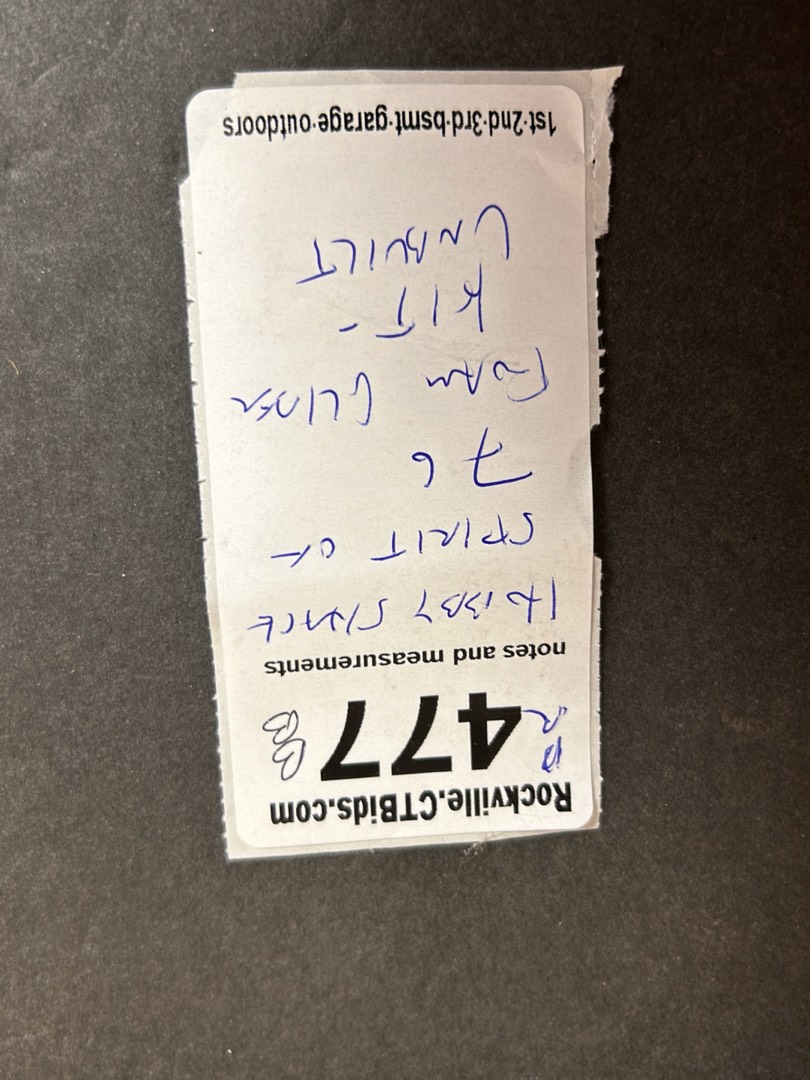 Rockville.CTBids.com
477
notes and measurements
HOBBY SHACK
SPIRIT OF
76
FOAM GLIDER
KIT-
UNBUILT
1st·2nd·3rd·bsmt·garage·outdoors